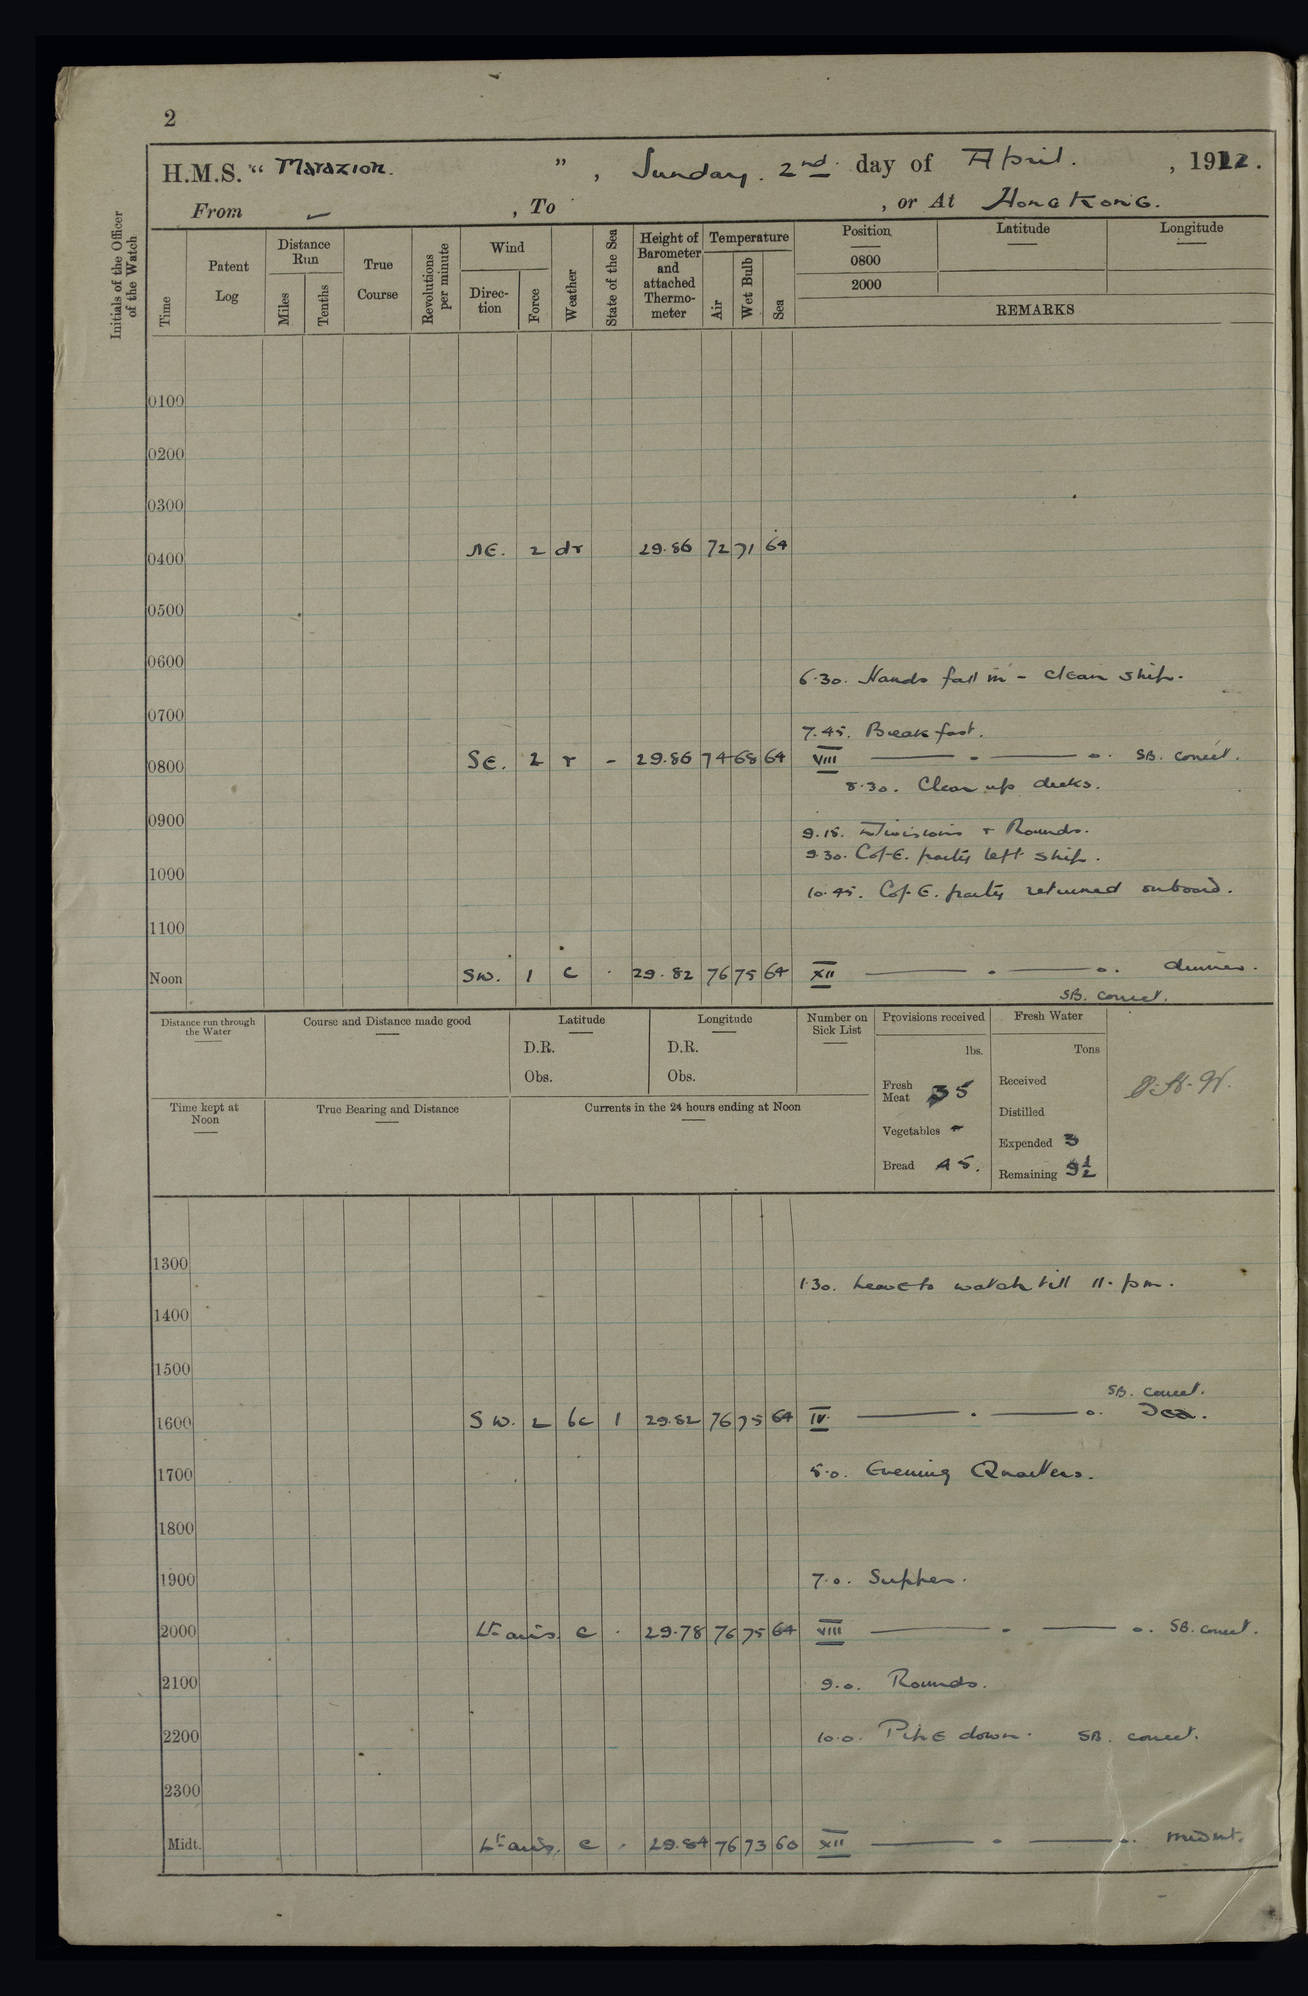 2
H.M.S. "Marazion.", Sunday. 2nd. day of April. , 1922.
From — , To , or At Hong Kong.
Initials of the Officer of the Watch
Time
Patent Log
Distance Run
Miles
Tenths
True Course
Revolutions per minute
Wind
Direction
Force
Weather
State of the Sea
Height of Barometer and attached Thermometer
Temperature
Air
Wet Bulb
Sea
Position
0800
2000
Latitude
Longitude
REMARKS
0100
0200
0300
0400 NE. 2 dr 29.86 72 71 64
0500
0600
6.30. Hands fall in - clean ship.
0700
7.45. Breakfast.
0800 SE. 2 r - 29.86 74 68 64 VIII —— . —— o. SB. correct.
8.30. Clear up decks.
0900
9.15. Divisions + Rounds.
9.30. C of E. party left ship.
1000
10.45. C of E. party returned onboard.
1100
Noon SW. 1 c . 29.82 76 75 64 XII —— . —— o. dinner.
SB. correct.
Distance run through the Water
Course and Distance made good
Latitude
D.R.
Obs.
Longitude
D.R.
Obs.
Number on Sick List
Provisions received
lbs.
Fresh Meat 35
Vegetables -
Bread 45.
Fresh Water
Tons
Received
Distilled
Expended 3
Remaining 9½
Time kept at Noon
True Bearing and Distance
Currents in the 24 hours ending at Noon
1300
1.30. Leave to watch till 11. pm.
1400
1500
SB. correct.
1600 SW. 2 bc 1 29.82 76 75 64 IV. —— . —— o. Tea.
1700 5.0. Evening Quarters.
1800
1900 7.0. Supper.
2000 Lt airs. c . 29.78 76 75 64 VIII —— . —— o. SB. correct.
2100 9.0. Rounds.
2200 10.0. Pipe down. SB. correct.
2300
Midt. Lt airs. c . 29.84 76 73 60 XII —— . —— o. midnt.